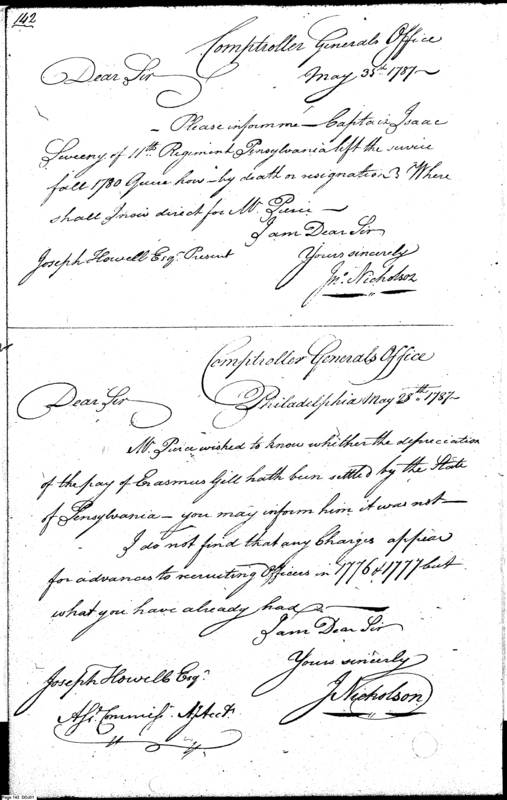 142
Comptroller Generals Office
Dear Sir May 1787
Please inform me Captain Isaac
Sweeny of 11th Regiment Pensylvania left the service
fall 1780 Quere how by death or resignation & Where
shall I now direct for Mr. Pierce
I am Dear Sir
Joseph Howell Esqr. Present Yours sincerely
Jno. Nicholson
Comptroller Generals Office
Dear Sir Philadelphia May 28th. 1787
Mr. Pierce wished to know whether the depreciation
of the pay of Erasmus Gill hath been settled by the State
of Pensylvania — you may inform him it was not —
I do not find that any Charges appear
for advances to recruiting Officers in 1776 & 1777 but
what you have already had
I am Dear Sir
Yours sincerely
Joseph Howell Esqr.
J Nicholson
Asst. Commissr. Acct.
Page 142